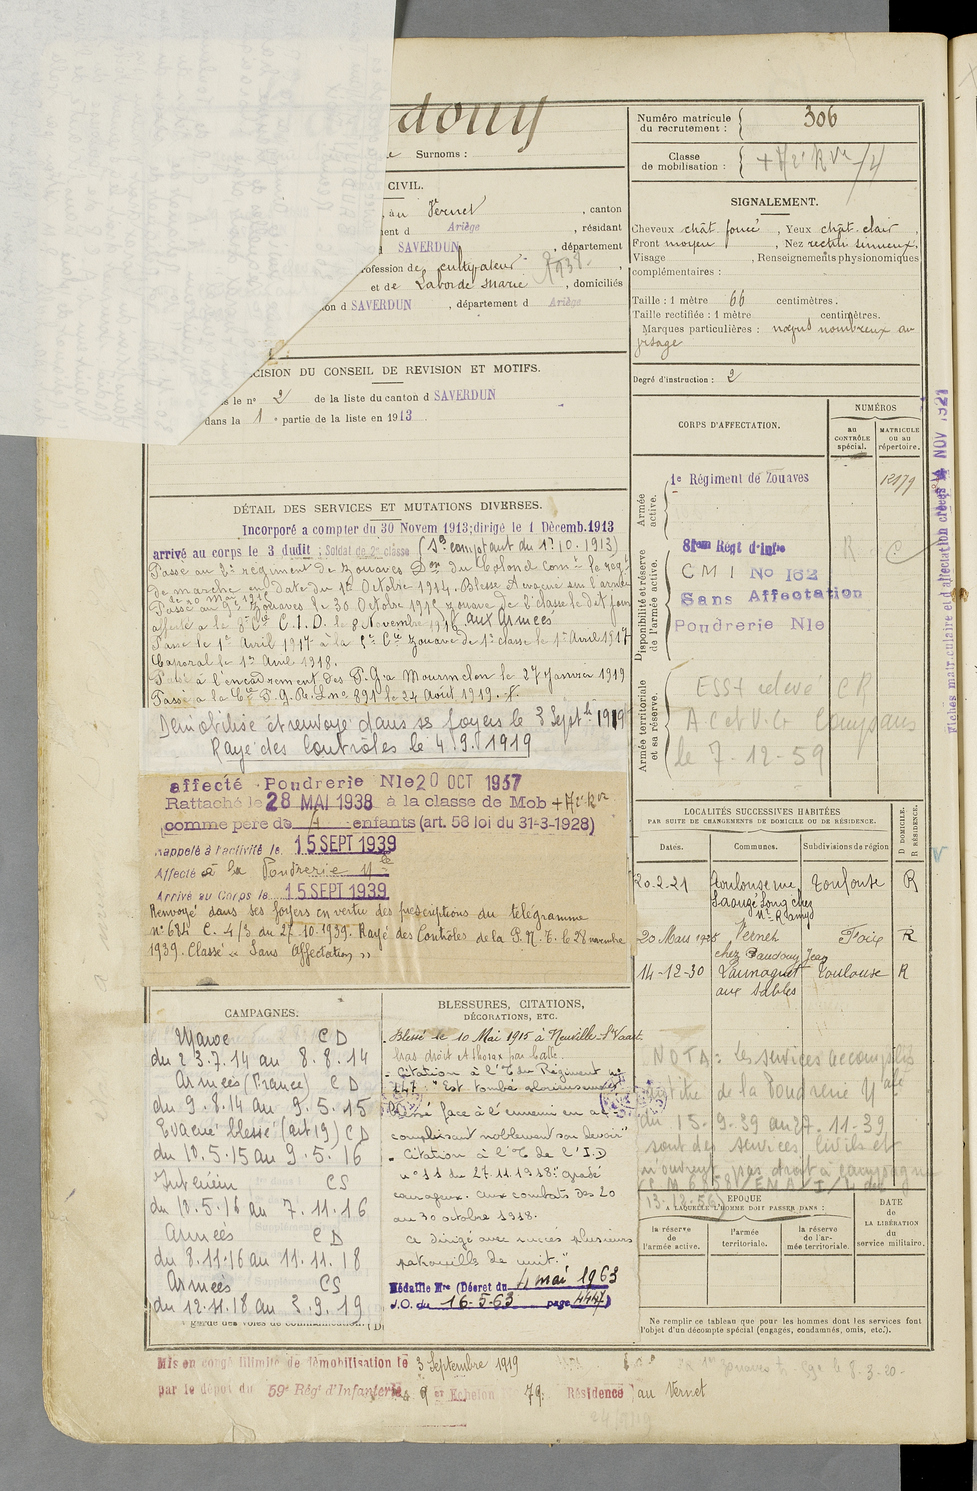 douy
Surnoms :
Numéro matricule
du recrutement :
306
Classe
de mobilisation :
CIVIL.
au Vernet , canton
Ariège , résidant
SAVERDUN , département
profession de cultivateur 1938
et de Laborde Marie , domiciliés
SAVERDUN , département d Ariège
SIGNALEMENT.
Cheveux chât foncé , Yeux chât clair ,
Front moyen , Nez rectil sinueux,
Visage , Renseignements physionomiques
complémentaires :
Taille : 1 mètre 66 centimètres.
Taille rectifiée : 1 mètre centimètres.
Marques particulières : nævus nombreux au
visage
Degré d'instruction : 2
CISION DU CONSEIL DE REVISION ET MOTIFS.
s le n° 2 de la liste du canton d SAVERDUN
dans la 1e partie de la liste en 1913
CORPS D'AFFECTATION.
NUMÉROS
au
CONTRÔLE
spécial.
MATRICULE
ou au
répertoire.
Armée
active.
1e Régiment de Zouaves
12179
Disponibilité et réserve
de l'armée active.
81eme Regt d'Infie
R C
C M I No 162
Sans Affectation
Poudrerie Nle
Armée territoriale
et sa réserve.
ESS+ relevé CR
A C et V. G Compans
le 7-12-59
DÉTAIL DES SERVICES ET MUTATIONS DIVERSES.
Incorporé a compter du 30 Novem 1913; dirigé le 1 Décemb. 1913
arrivé au corps le 3 dudit ; Soldat de 2e classe (Sce comptant du 1r.10.1913)
Passé au 2e régiment de zouaves Don du Colonel Comt le rég.
de marche en date du 1r Octobre 1914. Blessé évacué sur l'arrière
Passé au 9e Zouaves le 30 Octobre 1916 zouave de 2e classe le dit jour
affecté a la Cie C.I.D. le 8 Novembre 1916 aux Armées
Passé le 1er Avril 1917 à la 5e Cie Zouave de 1e classe le 1r Avril 1917
Caporal le 1er Avril 1918.
Passé à l'encadrement des P.G a Mourmelon le 27 Janvier 1919
Passé a la Cie P.G. R.L n° 891 le 24 Août 1919.
Démobilisé et renvoyé dans ses foyers le 3 Septb 1919
Rayé des Contrôles le 4.9.1919
affecté Poudrerie Nle 20 OCT 1937
Rattaché le 28 MAI 1938 à la classe de Mob
comme père de 4 enfants (art. 58 loi du 31-3-1928)
Rappelé à l'activité le 15 SEPT 1939
Affecté à la Poudrerie Nle
Arrivé au Corps le 15 SEPT 1939
Renvoyé dans ses foyers en vertu des prescriptions du télégramme
n° 684 C. 4/3 du 27.10.1939. Rayé des Contrôles de la P.N.T. le 28 novembre
1939. Classé « Sans Affectation »
LOCALITÉS SUCCESSIVES HABITÉES
PAR SUITE DE CHANGEMENTS DE DOMICILE OU DE RÉSIDENCE.
Dates.
Communes.
Subdivisions de région
D DOMICILE.
R RÉSIDENCE.
20-2-21 Toulouse rue Toulouse R
20 Mars 1926 Vernet Foix R
chez Baudouy Jean
14-12-30 Launaguet Toulouse R
aux Sables
Fiches matriculaire et d'affectation créées NOV 1921
CAMPAGNES.
Maroc CD
du 23.7.14 au 8.8.14
Armées (France) CD
du 9.8.14 au 9.5.15
Evacué blessé (art 19) CD
du 10.5.15 au 9.5.16
Intérieur CS
du 10.5.16 au 7.11.16
Armées CD
du 8.11.16 au 11.11.18
Armées CS
du 12.11.18 au 3.9.19
garde des voies de communication. (D)
BLESSURES, CITATIONS,
DÉCORATIONS, ETC.
Blessé le 10 Mai 1915 à Neuville-St Vaast
bras droit et thorax par balle.
- Citation à l'O du Régiment n°
147 : "Est tombé glorieusement
blessé face à l'ennemi en ac-
complissant noblement son devoir"
- Citation à l'O de l'I.D
n° 11 du 27.11.1918: gradé
courageux. Aux combats des 20
au 30 octobre 1918.
a dirigé avec succès plusieurs
patrouilles de nuit."
Médaille Mre (Décret du 4 mai 1963
J.O. du 16-5-63 page 4447)
NOTA: les services accomplis
au titre de la Poudrerie Nale
du 15-9-39 au 27.11.39
sont des services civils et
n'ouvrent pas droit à campagne
13-12-56)
EPOQUE
A LAQUELLE L'HOMME DOIT PASSER DANS :
DATE
de
LA LIBÉRATION
du
service militaire.
la réserve
de
l'armée active.
l'armée
territoriale.
la réserve
de l'ar-
mée territoriale.
Ne remplir ce tableau que pour les hommes dont les services font
l'objet d'un décompte spécial (engagés, condamnés, omis, etc.).
Mis en congé illimité de démobilisation le 3 Septembre 1919
par le dépôt du 59e Rég' d'Infanterie 9 er Echelon 79. Résidence au Vernet